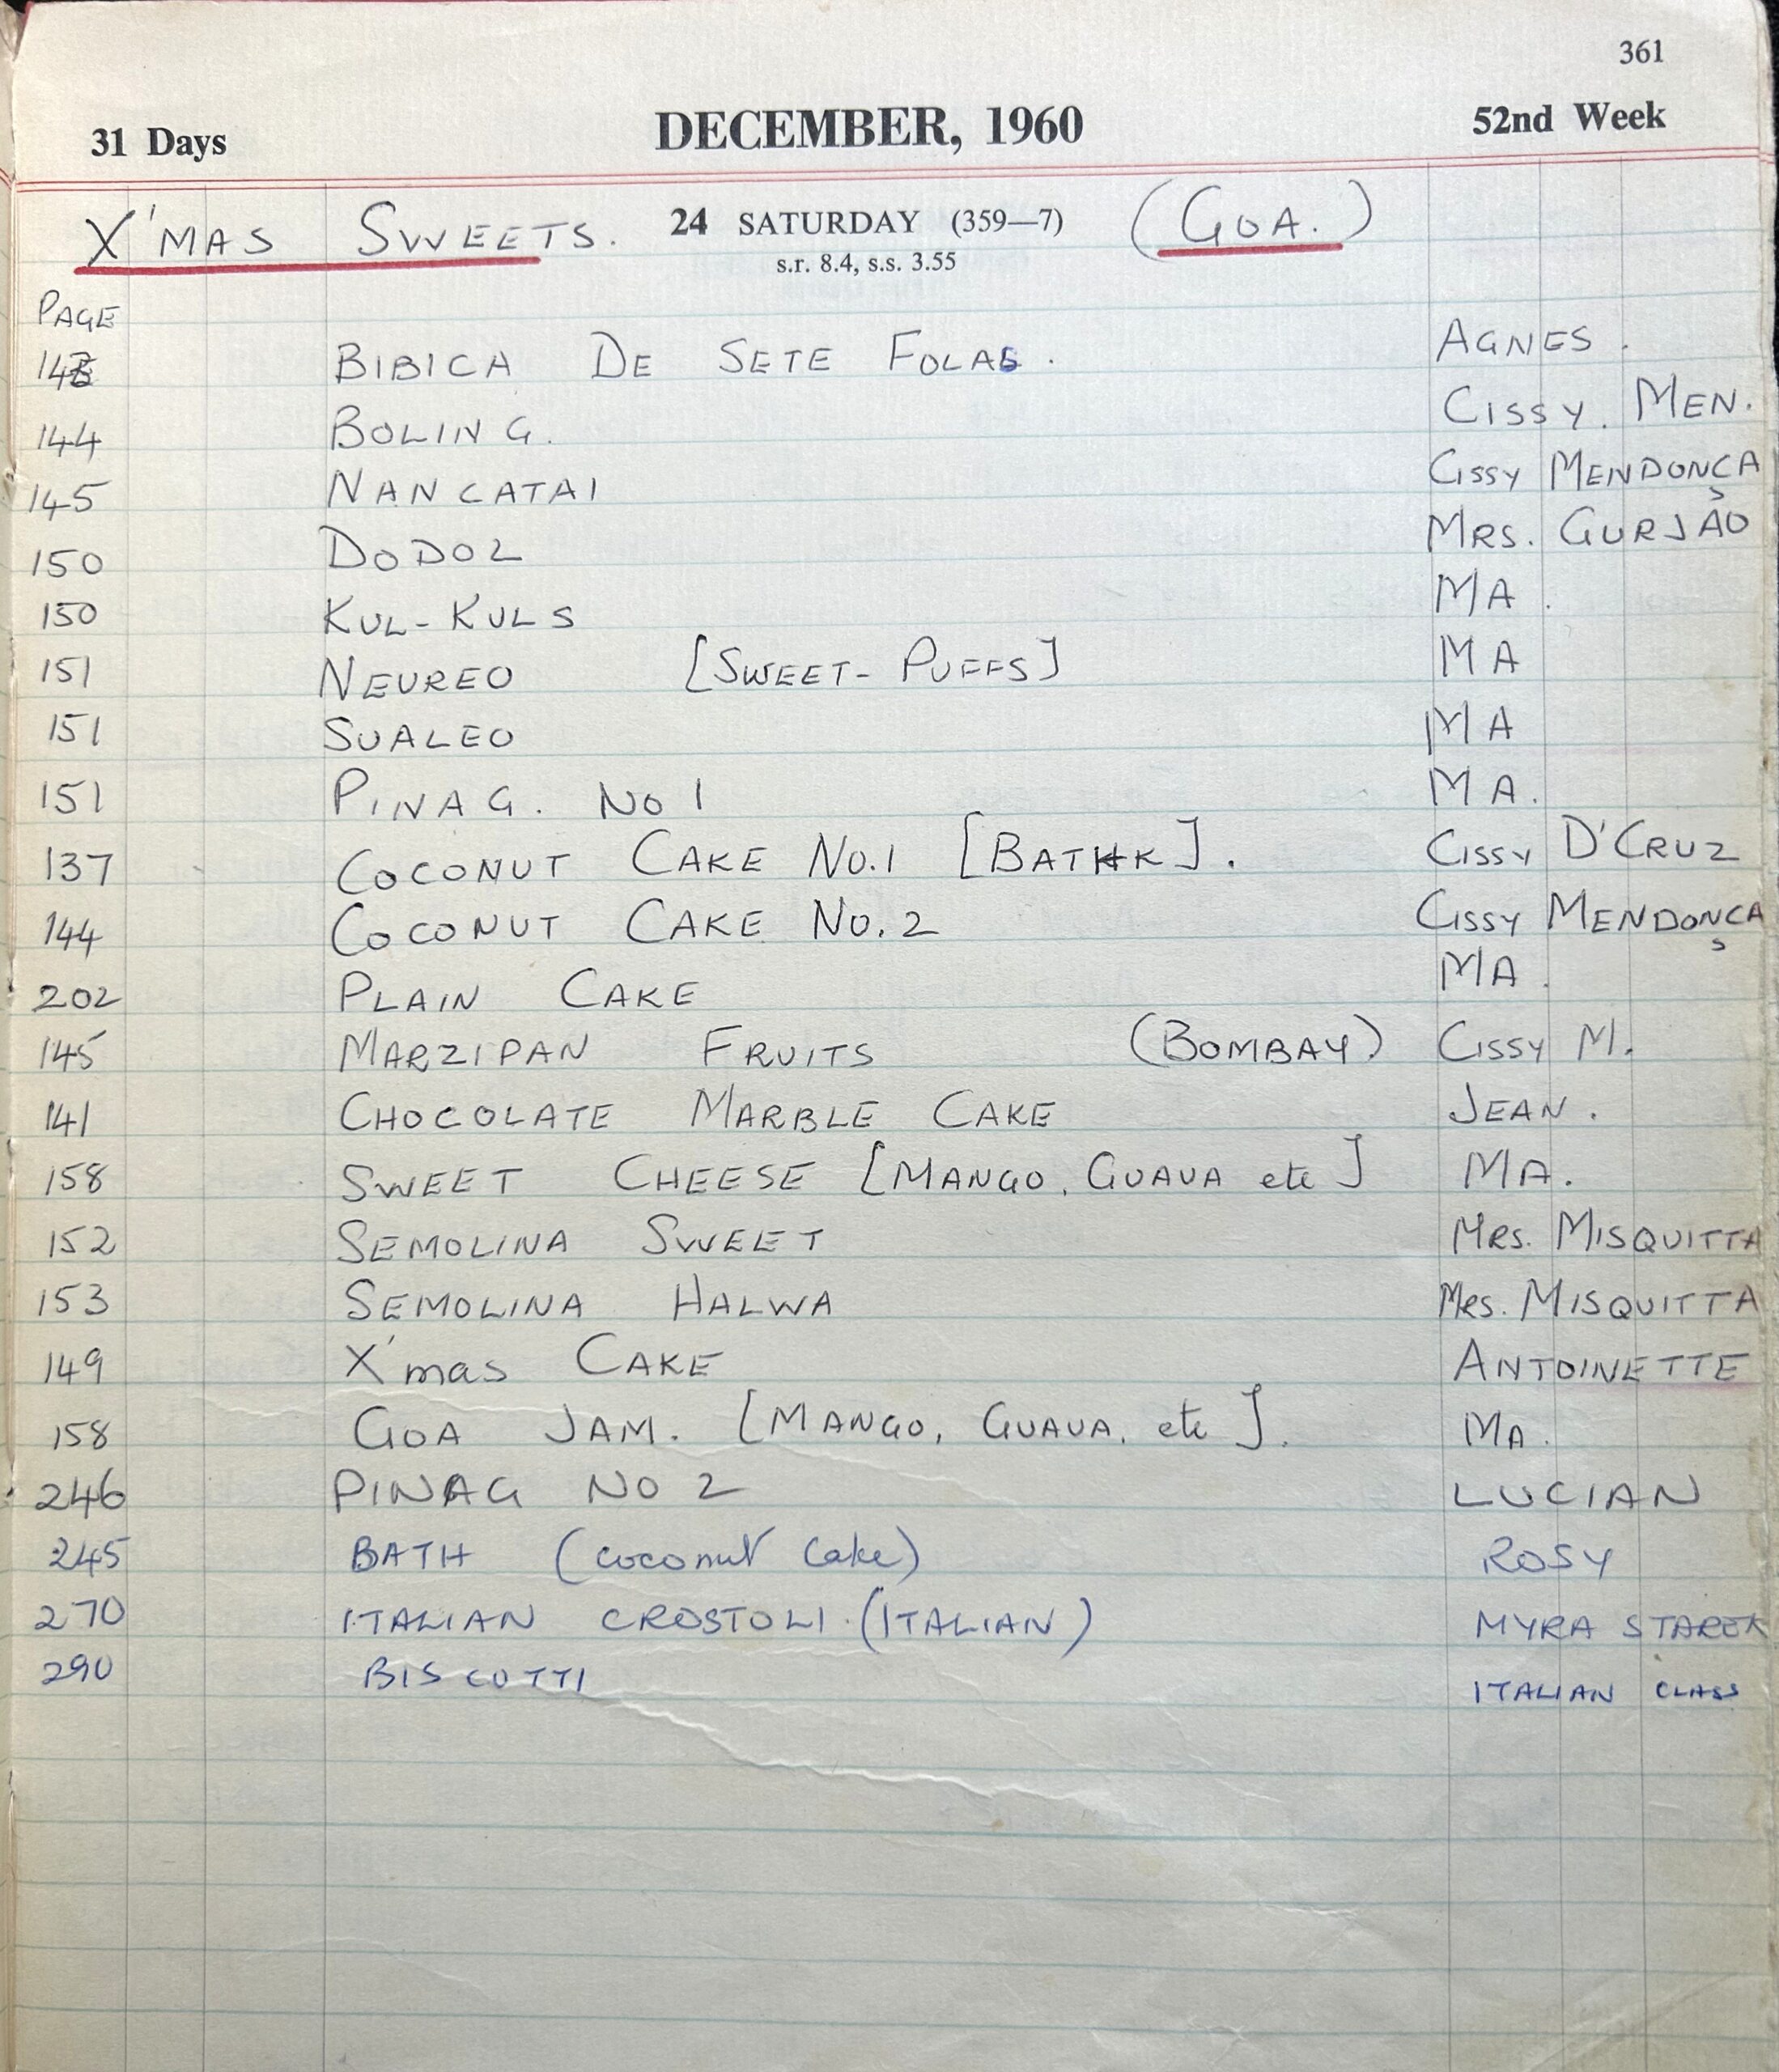 361
31 Days DECEMBER, 1960 52nd Week
X'MAS SWEETS. 24 SATURDAY (359—7) (GOA.)
s.r. 8.4, s.s. 3.55
PAGE
BIBICA DE SETE FOLAS. AGNES.
144 BOLING. CISSY. MEN.
145 NANCATAI CISSY MENDONÇA
150 DODOL MRS. GURJÃO
150 KUL-KULS MA.
151 NEUREO [SWEET-PUFFS] MA
151 SUALEO MA
151 PINAG. NO 1 MA.
137 COCONUT CAKE NO.1 [BATHK]. CISSY D'CRUZ
144 COCONUT CAKE NO.2 CISSY MENDONÇA
202 PLAIN CAKE MA.
145 MARZIPAN FRUITS (BOMBAY) CISSY M.
141 CHOCOLATE MARBLE CAKE JEAN.
158 SWEET CHEESE [MANGO, GUAVA etc] MA.
152 SEMOLINA SWEET MRS. MISQUITTA
153 SEMOLINA HALWA MRS. MISQUITTA
149 X'mas CAKE ANTOINETTE
158 GOA JAM. [MANGO, GUAVA, etc]. MA.
246 PINAG NO 2 LUCIAN
245 BATH (coconut Cake) ROSY
270 ITALIAN CROSTOLI. (ITALIAN) MYRA STAREK
290 BISCOTTI ITALIAN CLASS